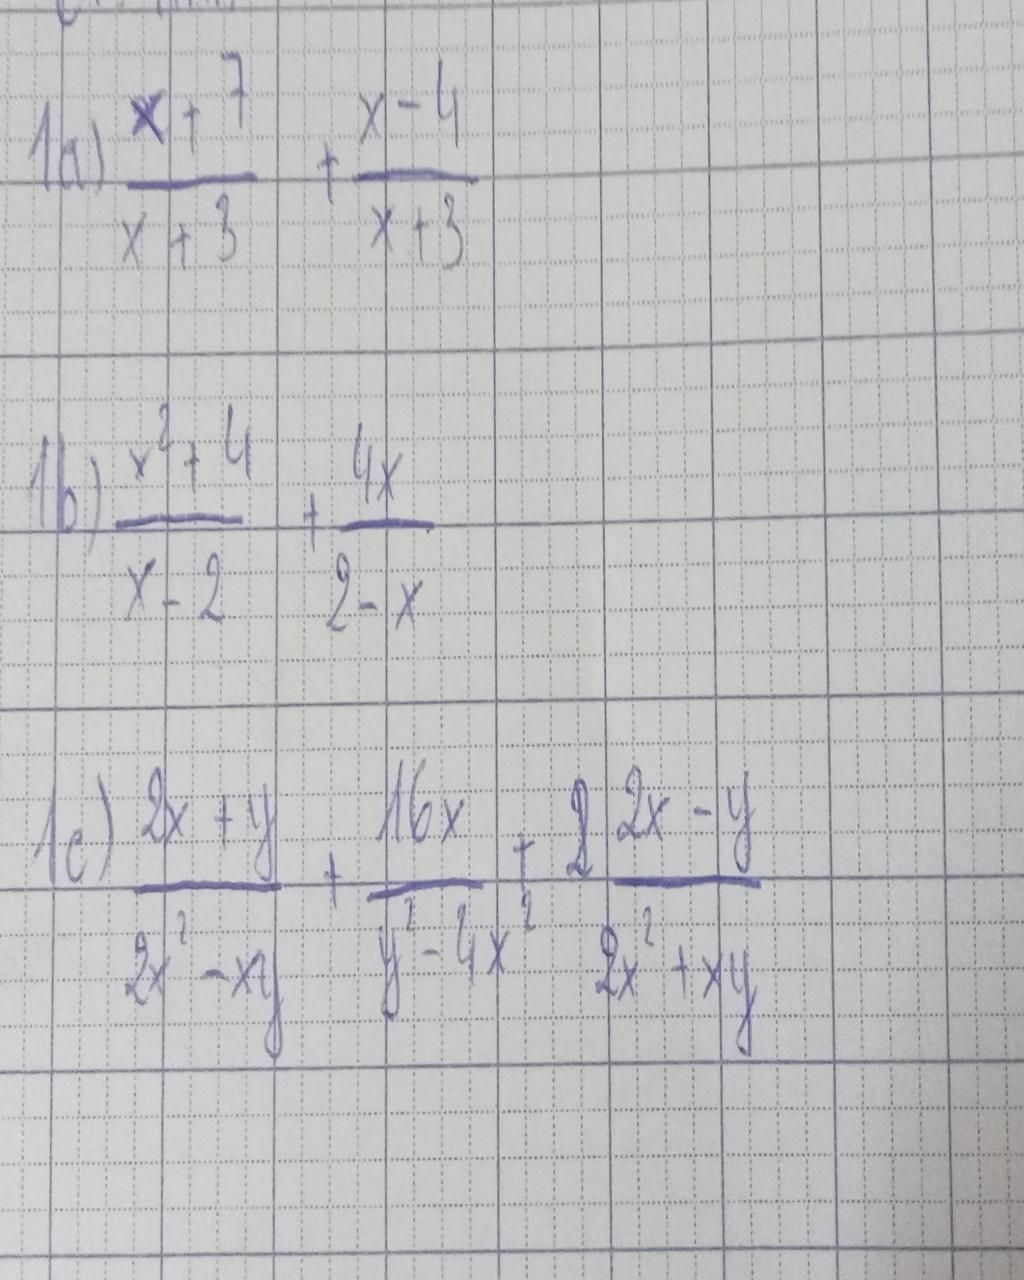 1a) x + 7 / x + 3 + x - 4 / x + 3
1b) x² + 4 / x - 2 + 4x / 2 - x
1c) 2x + y / 2x² - xy + 16x / y² - 4x² + 2x - y / 2x² + xy